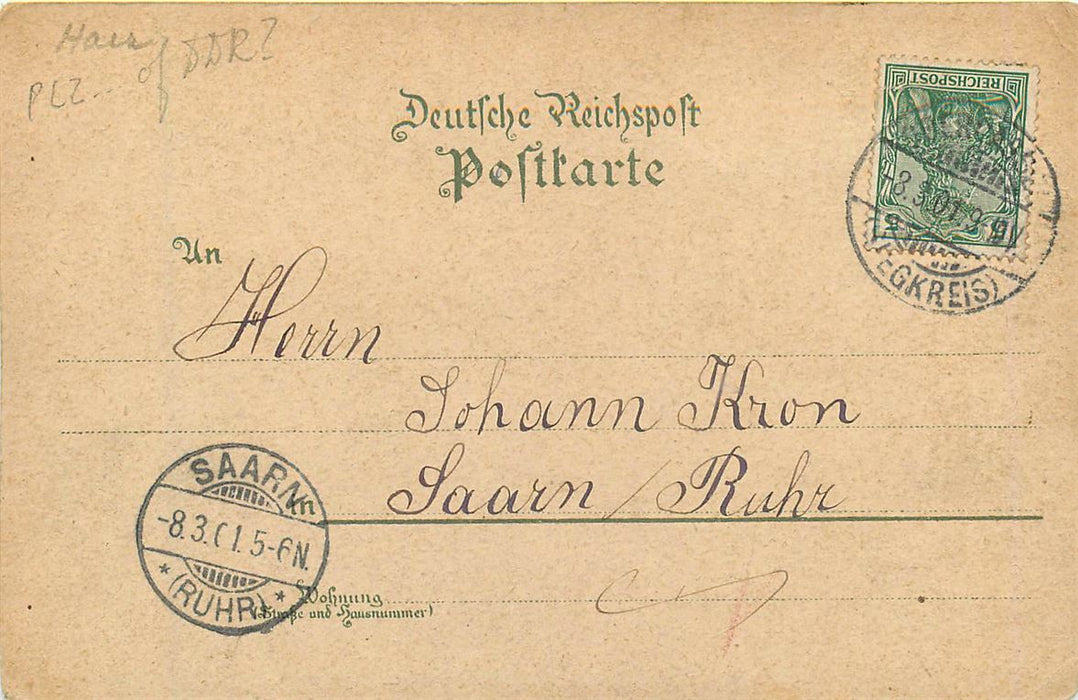 PLZ... of DDR?
REICHSPOST
Deutsche Reichspost
Postkarte
5 5
-8.3.01. 9-
EGKREIS)
An
Herrn
Johann Kron
Saarn / Ruhr
SAARN
-8.3.01. 5-6N.
* (RUHR) *
in
Wohnung
(Straße und Hausnummer)